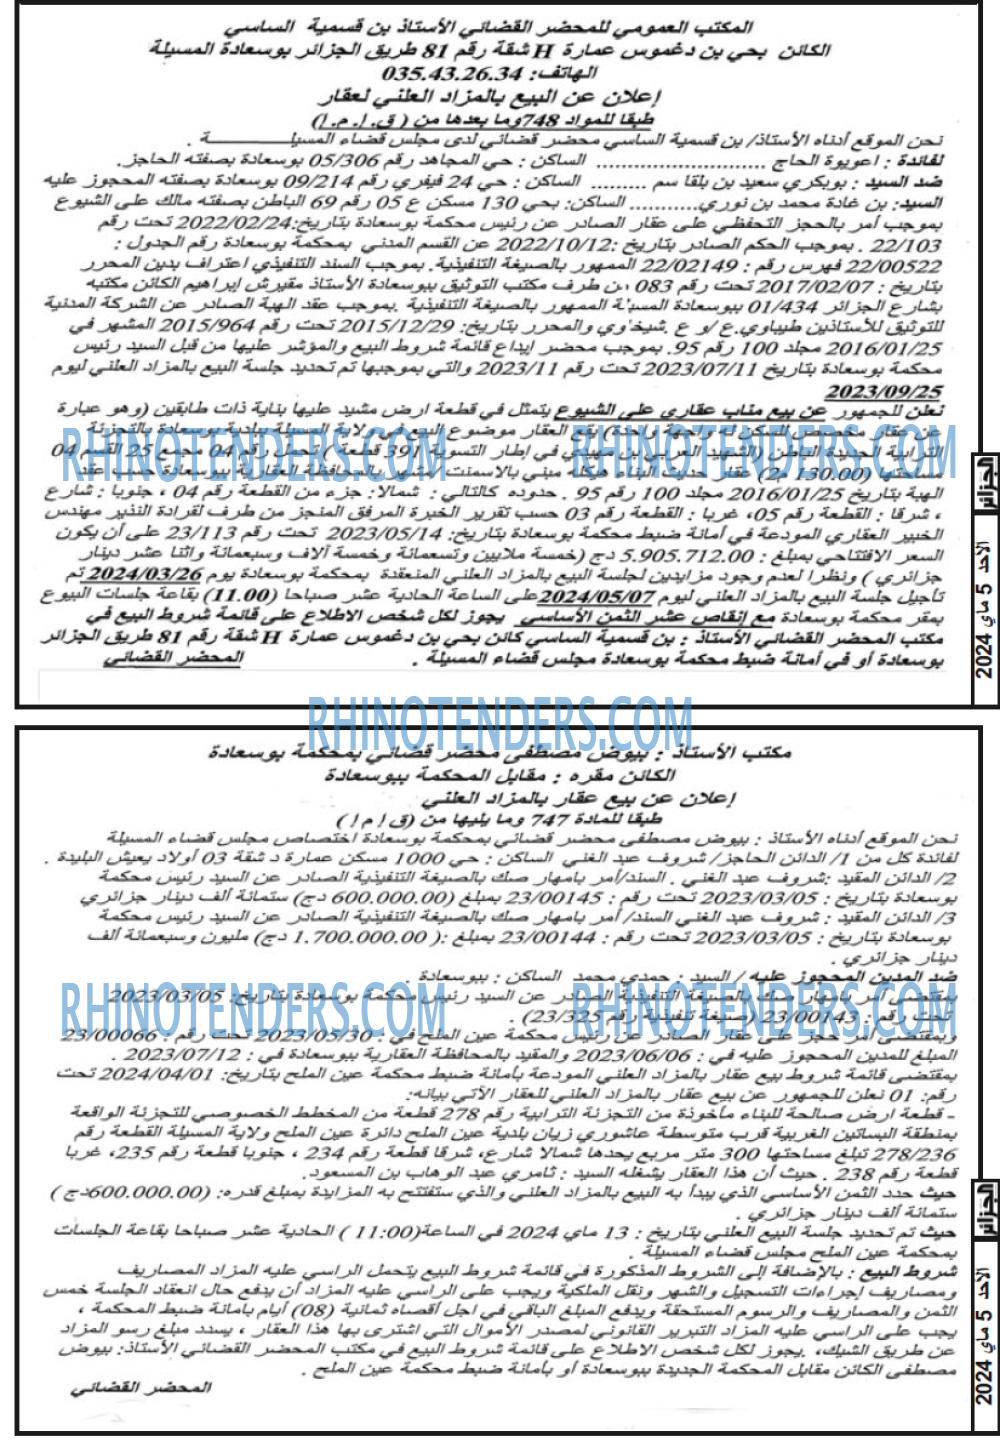 المكتب العمومي للمحضر القضائي الأستاذ بن قسمية الساسي
الكائن بحي بن دغموس عمارة H شقة رقم 81 طريق الجزائر بوسعادة المسيلة
الهاتف: 035.43.26.34
إعلان عن البيع بالمزاد العلني لعقار
طبقا للمواد 748 وما بعدها من ( ق. إ. م. إ)
نحن الموقع أدناه الأستاذ/ بن قسمية الساسي محضر قضائي لدى مجلس قضاء المسيلـــــــــة .
لفائدة : اعويوة الحاج .......................... الساكن : حي المجاهد رقم 05/306 بوسعادة بصفته الحاجز.
ضد السيد : بوبكري سعيد بن بلقا سم ......... الساكن : حي 24 فيفري رقم 09/214 بوسعادة بصفته المحجوز عليه
السيد: بن غادة محمد بن نوري........... الساكن: بحي 130 مسكن ع 05 رقم 69 الباطن بصفته مالك على الشيوع
بموجب أمر بالحجز التحفظي على عقار الصادر عن رئيس محكمة بوسعادة بتاريخ:2022/02/24 تحت رقم
22/103 . بموجب الحكم الصادر بتاريخ :2022/10/12 عن القسم المدني بمحكمة بوسعادة رقم الجدول :
22/00522 فهرس رقم : 22/02149 الممهور بالصيغة التنفيذية. بموجب السند التنفيذي اعتراف بدين المحرر
بتاريخ : 2017/02/07 تحت رقم 083 من طرف مكتب التوثيق ببوسعادة الأستاذ مقيرش إبراهيم الكائن مكتبه
بشارع الجزائر 01/434 ببوسعادة المسيلة الممهور بالصيغة التنفيذية .بموجب عقد الهبة الصادر عن الشركة المدنية
للتوثيق للأستاذين طيباوي.ع /و ع .شيخاوي والمحرر بتاريخ: 2015/12/29 تحت رقم 2015/964 المشهر في
2016/01/25 مجلد 100 رقم 95. بموجب محضر إيداع قائمة شروط البيع والمؤشر عليها من قبل السيد رئيس
محكمة بوسعادة بتاريخ 2023/07/11 تحت رقم 2023/11 والتي بموجبها تم تحديد جلسة البيع بالمزاد العلني ليوم
2023/09/25
نعلن للجمهور عن بيع مناب عقاري على الشيوع يتمثل في قطعة ارض مشيد عليها بناية ذات طابقين (وهو عبارة
عن عقار مخصص للسكن ذا واجهة واحدة) يقع العقار موضوع البيع في ولاية المسيلة ببلدية بوسعادة بالتجزئة
الترابية الجديدة الباطن (الشهيد العربي بن مهيدي في إطار التسوية 391 قطعة ) تحمل رقم 04 مجمع 25 القسم 04
مساحتها (130.00 م2) عقار حديث البناء هيكله مبني بالاسمنت /مشهر بالمحافظة العقارية ببوسعادة حسب عقد
الهبة بتاريخ 2016/01/25 مجلد 100 رقم 95 . حدوده كالتالي : شمالا: جزء من القطعة رقم 04 ، جنوبا : شارع
، شرقا : القطعة رقم 05، غربا : القطعة رقم 03 حسب تقرير الخبرة المرفق المنجز من طرف لقرادة النذير مهندس
الخبير العقاري المودعة في أمانة ضبط محكمة بوسعادة بتاريخ: 2023/05/14 تحت رقم 23/113 على أن يكون
السعر الافتتاحي بمبلغ : 5.905.712.00 دج (خمسة ملايين وتسعمائة وخمسة آلاف وسبعمائة واثنا عشر دينار
جزائري ) ونظرا لعدم وجود مزايدين لجلسة البيع بالمزاد العلني المنعقدة بمحكمة بوسعادة يوم 2024/03/26 تم
تأجيل جلسة البيع بالمزاد العلني ليوم 2024/05/07على الساعة الحادية عشر صباحا (11.00) بقاعة جلسات البيوع
بمقر محكمة بوسعادة مع إنقاص عشر الثمن الأساسي يجوز لكل شخص الاطلاع على قائمة شروط البيع في
مكتب المحضر القضائي الأستاذ : بن قسمية الساسي كائن بحي بن دغموس عمارة H شقة رقم 81 طريق الجزائر
بوسعادة أو في أمانة ضبط محكمة بوسعادة مجلس قضاء المسيلة .
المحضر القضائي
الجزائر
الأحد 5 ماي 2024
RHINOTENDERS.COM
RHINOTENDERS.COM
RHINOTENDERS.COM
مكتب الأستاذ : بيوض مصطفى محضر قضائي بمحكمة بوسعادة
الكائن مقره : مقابل المحكمة ببوسعادة
إعلان عن بيع عقار بالمزاد العلني
طبقا للمادة 747 وما يليها من (ق إ م إ )
نحن الموقع أدناه الأستاذ : بيوض مصطفى محضر قضائي بمحكمة بوسعادة اختصاص مجلس قضاء المسيلة
لفائدة كل من 1/ الدائن الحاجز/ شروف عبد الغني الساكن : حي 1000 مسكن عمارة د شقة 03 أولاد يعيش البليدة .
2/ الدائن المقيد :شروف عبد الغني . السند/أمر بامهار صك بالصيغة التنفيذية الصادر عن السيد رئيس محكمة
بوسعادة بتاريخ : 2023/03/05 تحت رقم : 23/00145 بمبلغ (600.000.00 دج) ستمائة ألف دينار جزائري
3/ الدائن المقيد : شروف عبد الغني السند/ أمر بامهار صك بالصيغة التنفيذية الصادر عن السيد رئيس محكمة
بوسعادة بتاريخ : 2023/03/05 تحت رقم : 23/00144 بمبلغ :( 1.700.000.00 دج) مليون وسبعمائة ألف
دينار جزائري .
ضد المدين المحجوز عليه / السيد : حمدي محمد الساكن : ببوسعادة .
بمقتضى أمر بامهار صك بالصيغة التنفيذية الصادر عن السيد رئيس محكمة بوسعادة بتاريخ: 2023/03/05
تحت رقم : 23/00143 (صيغة تنفيذية رقم 23/325) .
وبمقتضى أمر حجز على عقار الصادر عن رئيس محكمة عين الملح في : 2023/05/30 تحت رقم : 23/00066
المبلغ للمدين المحجوز عليه في : 2023/06/06 والمقيد بالمحافظة العقارية ببوسعادة في : 2023/07/12 .
بمقتضى قائمة شروط بيع عقار بالمزاد العلني المودعة بأمانة ضبط محكمة عين الملح بتاريخ: 2024/04/01 تحت
رقم: 01 نعلن للجمهور عن بيع عقار بالمزاد العلني للعقار الآتي بيانه:
- قطعة ارض صالحة للبناء مأخوذة من التجزئة الترابية رقم 278 قطعة من المخطط الخصوصي للتجزئة الواقعة
بمنطقة البساتين الغربية قرب متوسطة عاشوري زيان بلدية عين الملح دائرة عين الملح ولاية المسيلة القطعة رقم
278/236 تبلغ مساحتها 300 متر مربع يحدها شمالا شارع، شرقا قطعة رقم 234 ، جنوبا قطعة رقم 235، غربا
قطعة رقم 238 . حيث أن هذا العقار يشغله السيد : ثامري عبد الوهاب بن المسعود.
حيث حدد الثمن الأساسي الذي يبدأ به البيع بالمزاد العلني والذي ستفتتح به المزايدة بمبلغ قدره: (600.000.00دج )
ستمائة ألف دينار جزائري .
حيث تم تحديد جلسة البيع العلني بتاريخ : 13 ماي 2024 في الساعة(11:00 ) الحادية عشر صباحا بقاعة الجلسات
بمحكمة عين الملح مجلس قضاء المسيلة .
شروط البيع : بالإضافة إلى الشروط المذكورة في قائمة شروط البيع يتحمل الراسي عليه المزاد المصاريف
ومصاريف إجراءات التسجيل والشهر ونقل الملكية ويجب على الراسي عليه المزاد أن يدفع حال انعقاد الجلسة خمس
الثمن والمصاريف والرسوم المستحقة ويدفع المبلغ الباقي في اجل أقصاه ثمانية (08) أيام بامانة ضبط المحكمة ،
يجب على الراسي عليه المزاد التبرير القانوني لمصدر الأموال التي اشترى بها هذا العقار ، يسدد مبلغ رسو المزاد
عن طريق الشيك، .يجوز لكل شخص الاطلاع على قائمة شروط البيع في مكتب المحضر القضائي الأستاذ: بيوض
مصطفى الكائن مقابل المحكمة الجديدة ببوسعادة أو بأمانة ضبط محكمة عين الملح .
المحضر القضائي
الجزائر
الأحد 5 ماي 2024
RHINOTENDERS.COM
RHINOTENDERS.COM